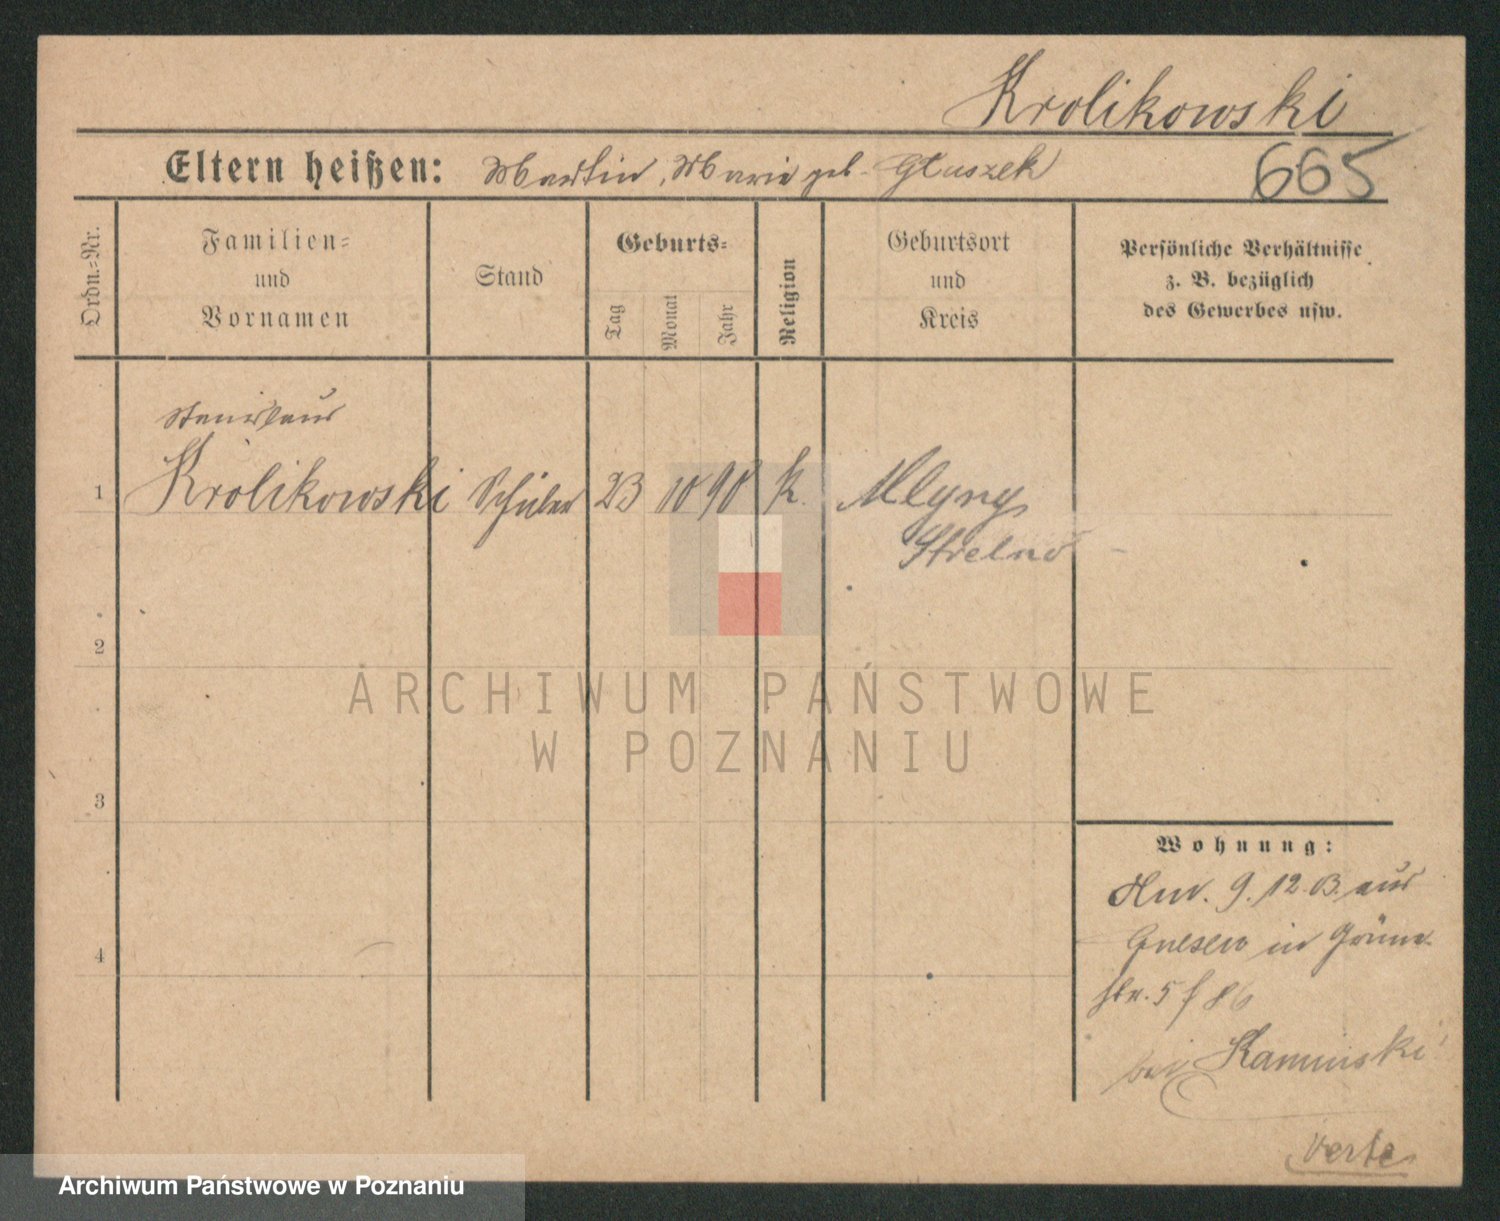 Krolikowski
Eltern heißen: Martin, Marie geb. Gluszek
665
Ordn.=Nr.
Familien=
und
Vornamen
Stand
Geburts=
Tag
Monat
Jahr
Religion
Geburtsort
und
Kreis
Persönliche Verhältnisse
z. B. bezüglich
des Gewerbes usw.
Stanislaus
1 Krolikowski Schüler 23 10 90 k. Mlyny
Strelno
2
ARCHIWUM PAŃSTWOWE
W POZNANIU
3
Wohnung:
9. 12. 03. aus
Gnesen in Grüne
4
str. 5
bei Kaminski
verte
Archiwum Państwowe w Poznaniu